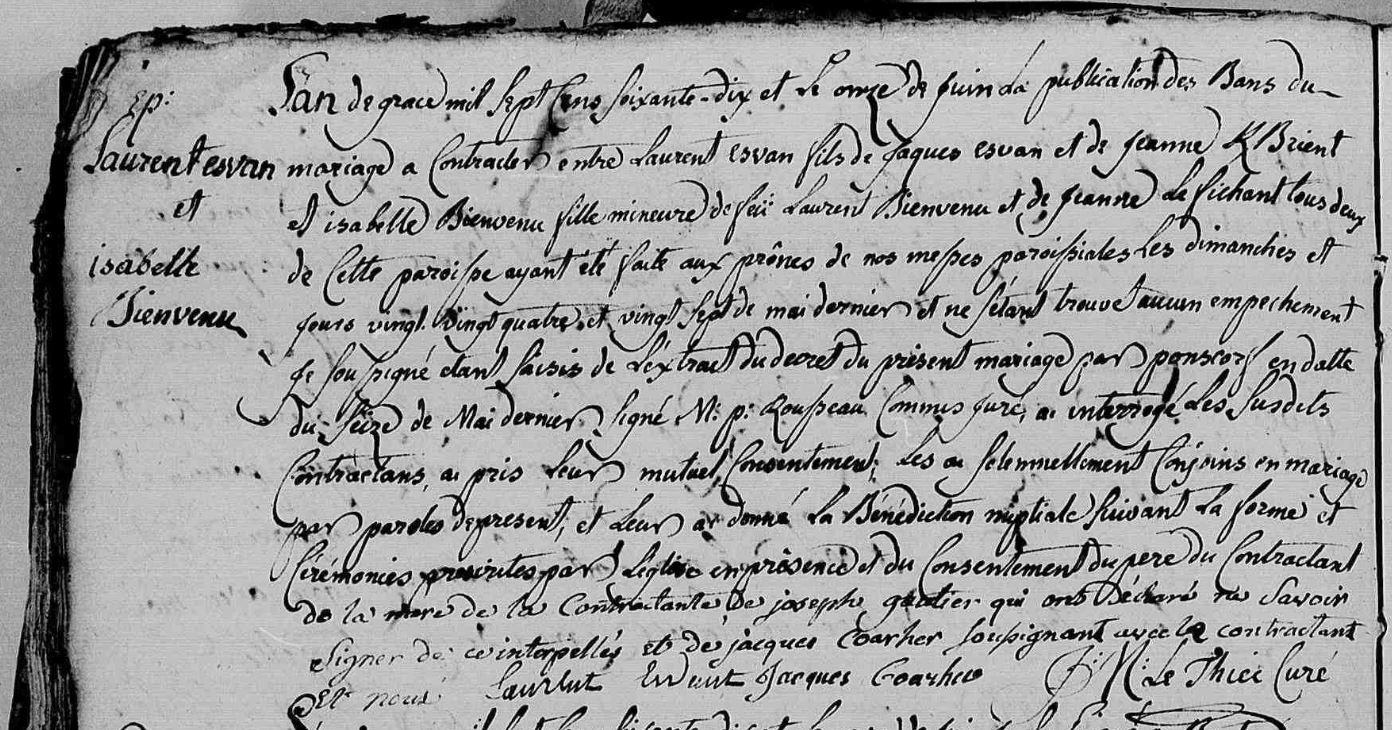 Ep:
Laurent esvan
et
isabelle
Bienvenu
L'an de grace mil sept Cens soixante-dix et Le onze de juin La publication des Bans du
mariage a Contracter entre Laurent esvan fils de jaques esvan et de jeanne KBrient
et isabelle Bienvenu fille mineure de feü Laurent Bienvenu et de jeanne Le fichant tous deux
de Cette paroisse ayant été faite aux prônes de nos messes paroissiales Les dimanches et
jours vingt. vingt quatre, et vingt sept de mai dernier et ne s'étant trouvé aucun empechement
je soussigné etant saisis de L'extrait du decret du présent mariage par ponscorf en datte
du seize de Mai dernier signé M: p: Rousseau Commis juré, ai interrogé Les susdits
Contractans, ai pris Leur mutuel Consentement, Les ai solemnellement Conjoins en mariage
par paroles de present, et Leur ai donné La Bénédiction nuptiale suivant La forme et
Cérémonies prescrites par L'eglise en présence et du Consentement du pere du Contractant
de la mere de la Contractante de joseph gautier qui ont Déclaré ne savoir
signer de ce interpellés et de jacques Coarher soussignant avec le contractant
Et nous Laurent Jacques Coarher J: M: Le Thiec Curé